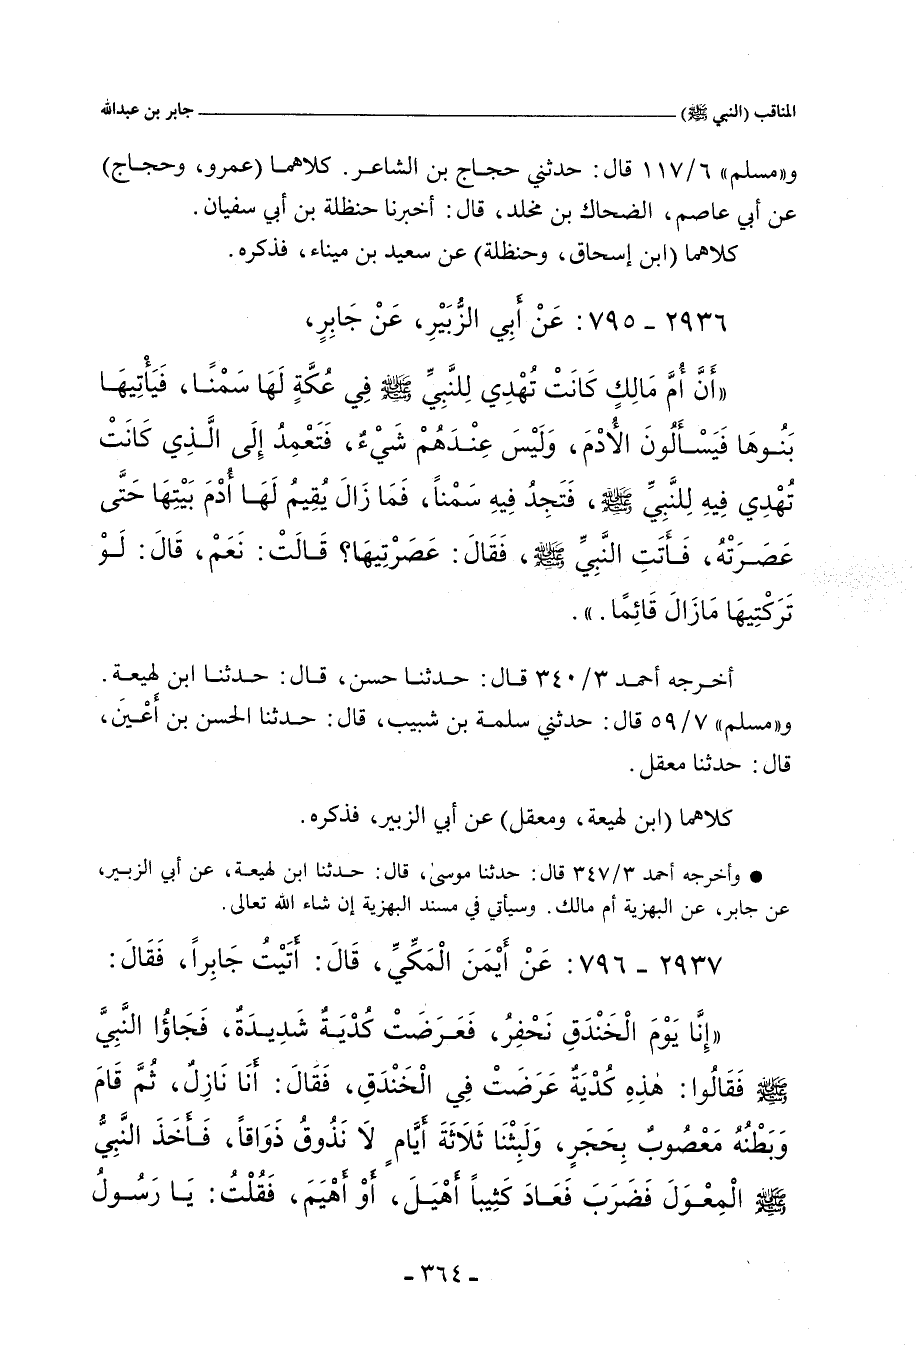 المناقب (النبي ﷺ) ـــــــــــــــــ جابر بن عبدالله
و«مسلم» ١١٧/٦ قال: حدثني حجاج بن الشاعر. كلاهما (عمرو، وحجاج)
عن أبي عاصم، الضحاك بن مخلد، قال: أخبرنا حنظلة بن أبي سفيان.
كلاهما (ابن إسحاق، وحنظلة) عن سعيد بن ميناء، فذكره.
٢٩٣٦ ـ ٧٩٥: عَنْ أَبِي الزُّبَيْرِ، عَنْ جَابِرٍ،
«أَنَّ أُمَّ مَالِكٍ كَانَتْ تُهْدِي لِلنَّبِيِّ ﷺ فِي عُكَّةٍ لَهَا سَمْنًا، فَيَأْتِيهَا
بَنُوهَا فَيَسْأَلُونَ الْأُدْمَ، وَلَيْسَ عِنْدَهُمْ شَيْءٌ، فَتَعْمِدُ إِلَى الَّذِي كَانَتْ
تُهْدِي فِيهِ لِلنَّبِيِّ ﷺ، فَتَجِدُ فِيهِ سَمْناً، فَمَا زَالَ يُقِيمُ لَهَا أُدْمَ بَيْتِهَا حَتَّى
عَصَرَتْهُ، فَأَتَتِ النَّبِيَّ ﷺ، فَقَالَ: عَصَرْتِيهَا؟ قَالَتْ: نَعَمْ، قَالَ: لَوْ
تَرَكْتِيهَا مَازَالَ قَائِمًا.».
أخرجه أحمد ٣٤٠/٣ قال: حدثنا حسن، قال: حدثنا ابن لهيعة.
و«مسلم» ٥٩/٧ قال: حدثني سلمة بن شبيب، قال: حدثنا الحسن بن أَعْيَن،
قال: حدثنا معقل.
كلاهما (ابن لهيعة، ومعقل) عن أبي الزبير، فذكره.
● وأخرجه أحمد ٣٤٧/٣ قال: حدثنا موسىٰ، قال: حدثنا ابن لهيعة، عن أبي الزبير،
عن جابر، عن البهزية أم مالك. وسيأتي في مسند البهزية إن شاء الله تعالى.
٢٩٣٧ ـ ٧٩٦: عَنْ أَيْمَنَ الْمَكِّيِّ، قَالَ: أَتَيْتُ جَابِراً، فَقَالَ:
«إِنَّا يَوْمَ الْخَنْدَقِ نَحْفِرُ، فَعَرَضَتْ كُدْيَةٌ شَدِيدَةٌ، فَجَاؤُا النَّبِيَّ
ﷺ فَقَالُوا: هٰذِهِ كُدْيَةٌ عَرَضَتْ فِي الْخَنْدَقِ، فَقَالَ: أَنَا نَازِلٌ، ثُمَّ قَامَ
وَبَطْنُهُ مَعْصُوبٌ بِحَجَرٍ، وَلَبِثْنَا ثَلَاثَةَ أَيَّامٍ لَا نَذُوقُ ذَوَاقاً، فَأَخَذَ النَّبِيُّ
ﷺ الْمِعْوَلَ فَضَرَبَ فَعَادَ كَثِيباً أَهْيَلَ، أَوْ أَهْيَمَ، فَقُلْتُ: يَا رَسُولُ
- ٣٦٤ -